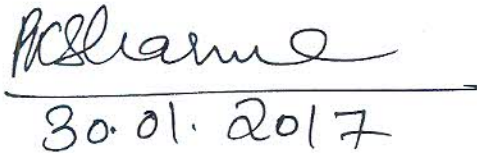 PCSharma
30.01.2017